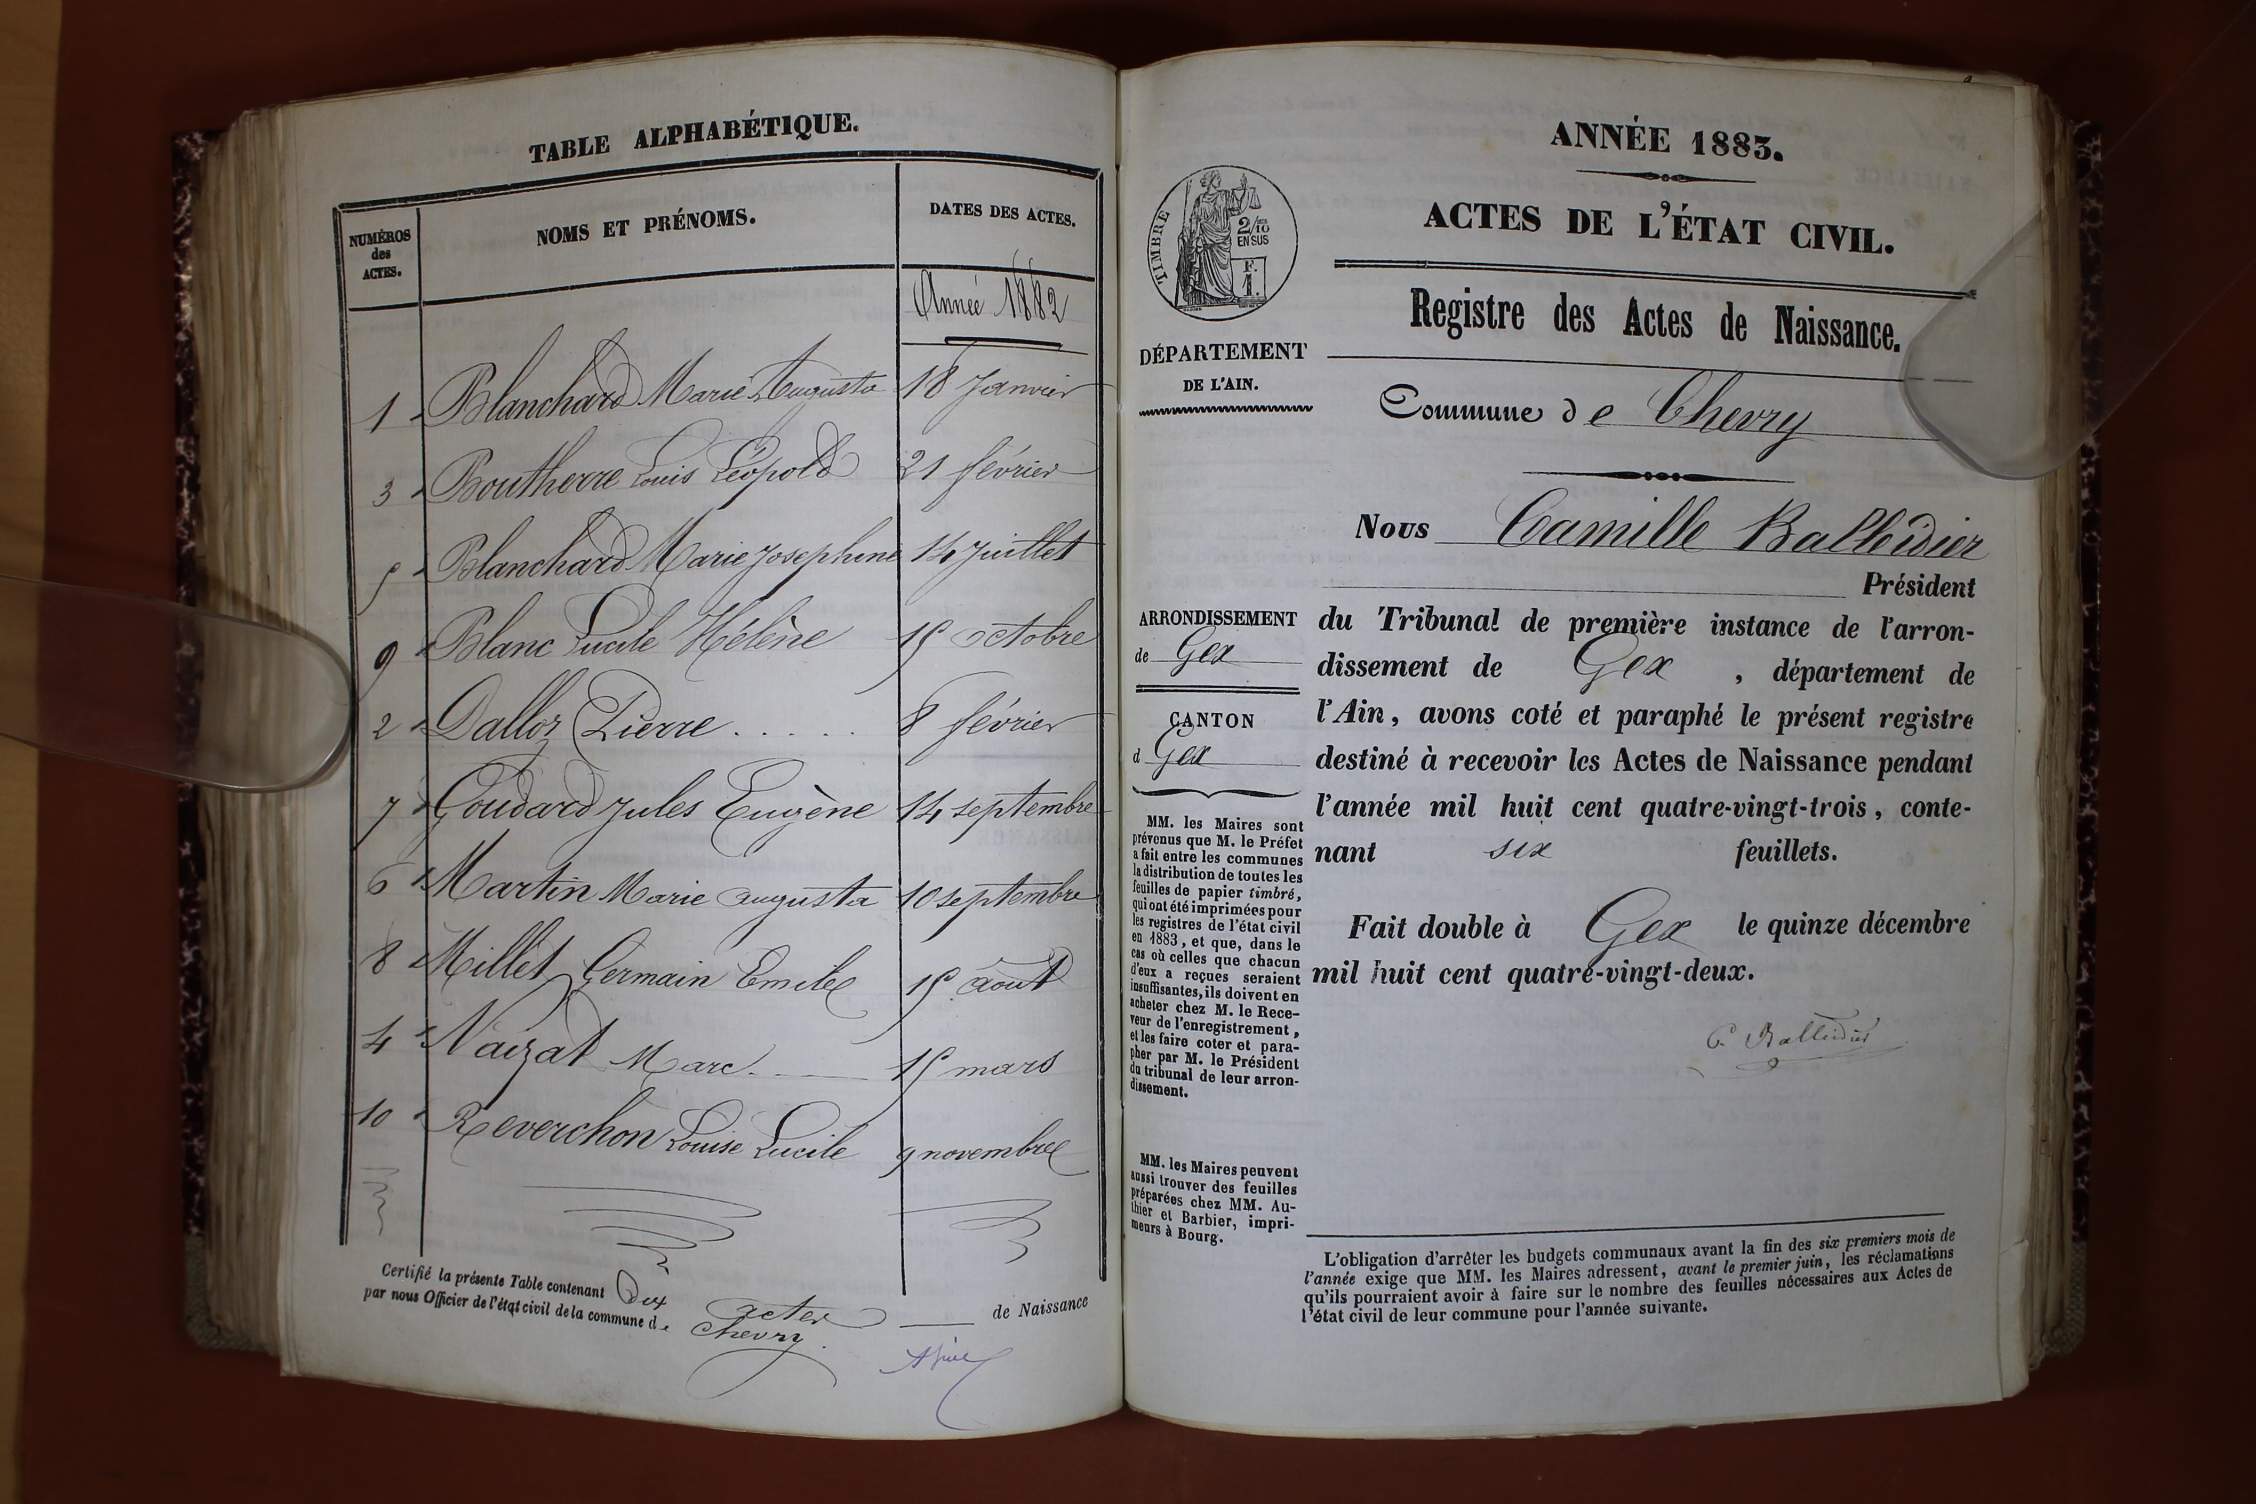 TABLE ALPHABÉTIQUE.
NUMÉROS
des
ACTES.
NOMS ET PRÉNOMS.
DATES DES ACTES.
Année 1882
1 Blanchard Marie Augusta 18 Janvier
3 Boutherre Louis Léopold 21 février
5 Blanchard Marie Josephine 14 Juillet
9 Blanc Lucile Hélène 15 octobre
2 Dalloz Pierre ..... 8 février
7 Goudard Jules Eugène 14 septembre
6 Martin Marie augusta 10 septembre
8 Millet Germain Emile 15 aout
4 Naizat Marc 15 mars
10 Reverchon Louise Lucile 9 novembre
Certifié la présente Table contenant Dix actes de Naissance
par nous Officier de l'état civil de la commune de Chevry.
ANNÉE 1883.
ACTES DE L'ÉTAT CIVIL.
Registre des Actes de Naissance.
TIMBRE
2/10
EN SUS
F.
1.
DÉPARTEMENT
DE L'AIN.
Commune de Chevry
Nous Camille Balleidier
Président
du Tribunal de première instance de l'arron-
dissement de Gex, département de
l'Ain, avons coté et paraphé le présent registre
destiné à recevoir les Actes de Naissance pendant
l'année mil huit cent quatre-vingt-trois, conte-
nant six feuillets.
Fait double à Gex le quinze décembre
mil huit cent quatre-vingt-deux.
C. Balleidier
ARRONDISSEMENT
de Gex
CANTON
d Gex
MM. les Maires sont
prévenus que M. le Préfet
a fait entre les communes
la distribution de toutes les
feuilles de papier timbré,
qui ont été imprimées pour
les registres de l'état civil
en 1883, et que, dans le
cas où celles que chacun
d'eux a reçues seraient
insuffisantes, ils doivent en
acheter chez M. le Rece-
veur de l'enregistrement,
et les faire coter et para-
pher par M. le Président
du tribunal de leur arron-
dissement.
MM. les Maires peuvent
aussi trouver des feuilles
préparées chez MM. Au-
thier et Barbier, impri-
meurs à Bourg.
L'obligation d'arrêter les budgets communaux avant la fin des six premiers mois de
l'année exige que MM. les Maires adressent, avant le premier juin, les réclamations
qu'ils pourraient avoir à faire sur le nombre des feuilles nécessaires aux Actes de
l'état civil de leur commune pour l'année suivante.